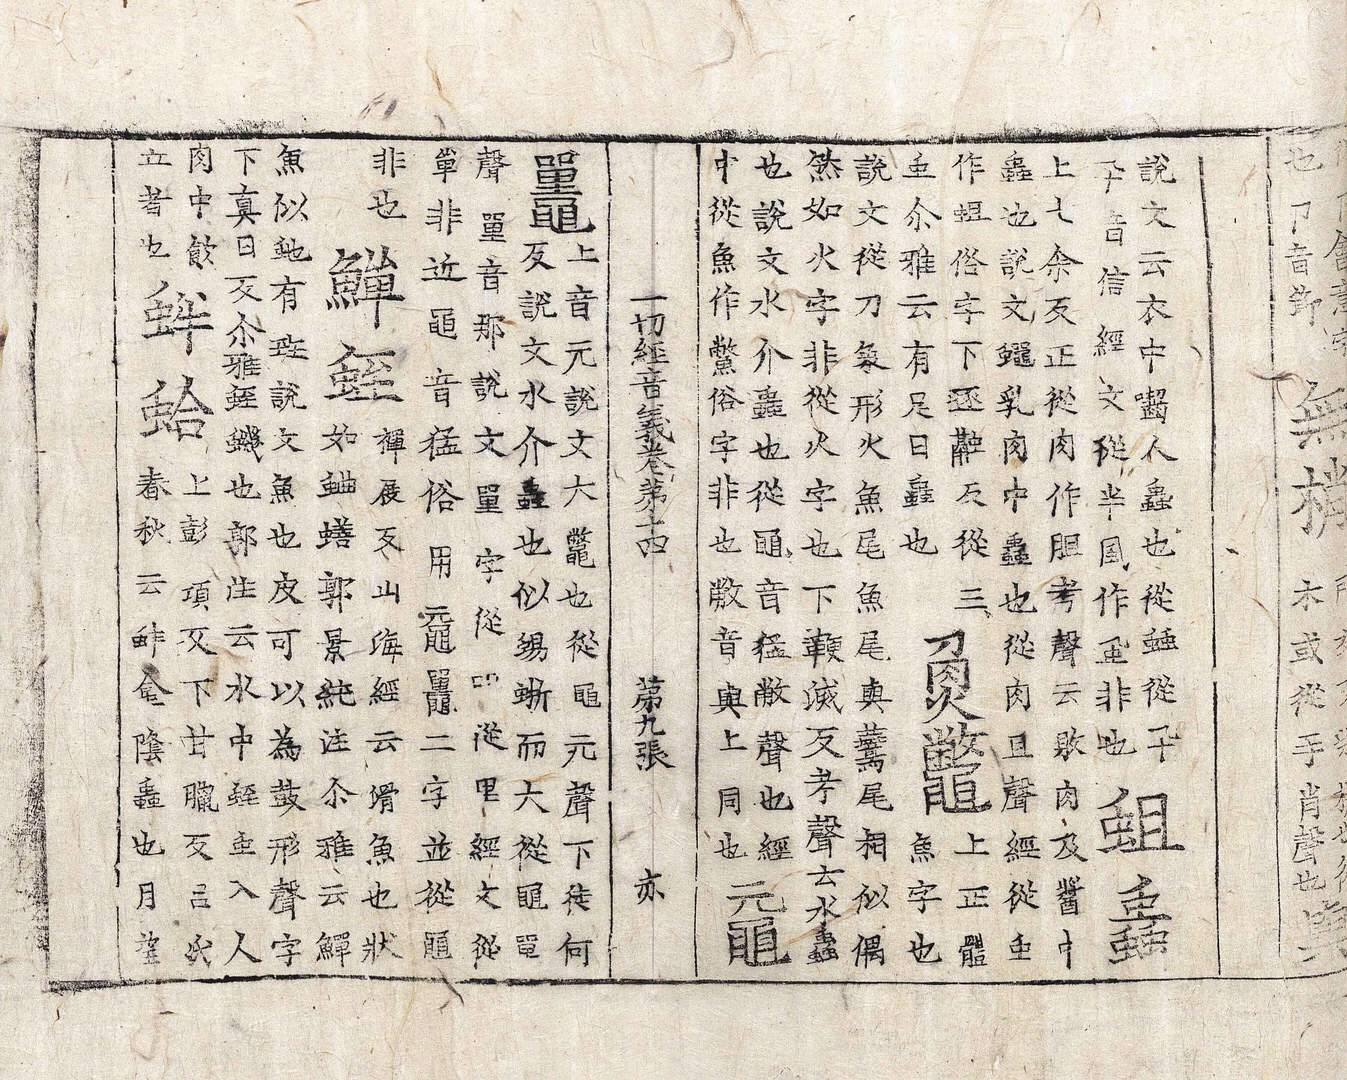 也卩音節
無梢
木或從手肖聲也
說文云衣中齧人蟲也從䖵從卂
卂音信經文從半風作䖝非也
蛆蟲
上七余反正從肉作胆考聲云敗肉及醬中
蟲也說文蠅乳肉中蟲也從肉且聲經從虫
作蛆俗字下逐融反從三
虫尒雅云有足曰蟲也
魚鼈
上正體
魚字也
說文從刀象形火魚尾魚尾與鷰尾相似偶
然如火字非從火字也下鞭滅反考聲云水蟲
也說文水介蟲也從黽音猛敝聲也經
中從魚作鱉俗字非也敝音與上同也
黿
一切經音義卷第十四 第九張 亦
鼉
上音元說文大鼈也從黽元聲下徒何
反說文水介蟲也似蜴蜥而大從黽單
聲單音那說文單字從吅從里經文從
單非近黽音猛俗用黿鼉二字並從龜
非也
鱓蛭
禪展反山海經云滑魚也狀
如䱇鱔郭景純注尒雅云鱓
魚似虵有斑說文魚也皮可以為鼓形聲字
下真日反尒雅蛭蟣也郭注云水中蛭虫入人
肉中飲
立者也
蚌蛤
上彭項反下甘臘反呂氏
春秋云蚌蛤陰蟲也月望